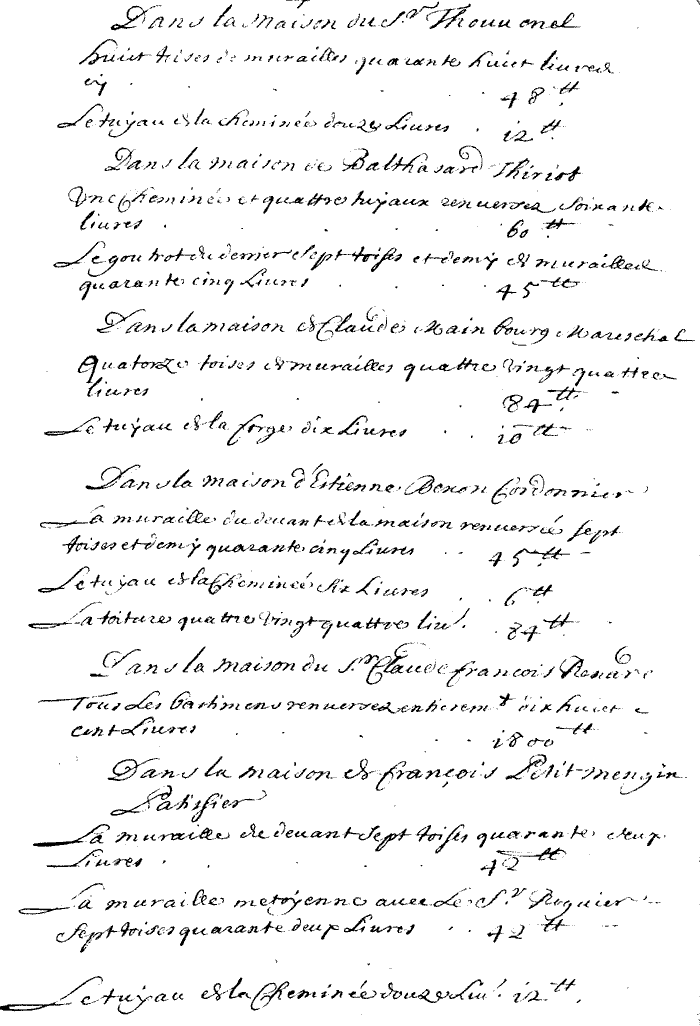 Dans la maison du S.r Thouvenel
huict toises de murailles quarante huict livres
cy . . . 48 tt.
Le tuyau de la cheminée douze Livres . 12 tt.
Dans la maison de Balthasard Thiriot
Une Cheminée et quattre tuyaux renversez Soixante
livres . . . 60 tt
Le goutrot du derrier Sept toises et demÿ de murailles
quarante cinq Livres . . 45 tt
Dans la maison de Claude Mainbourg Mareschal
Quatorze toises de murailles quattre Vingt quattre
livres . . . 84 tt.
Le tuyau de la forge dix Livres . . 10 tt.
Dans la maison d'Estienne Bexon Cordonnier
La muraille du devant de la maison renversée Sept
toises et demÿ quarante cinq Livres . . 45 tt.
Le tuyau de la Cheminée Six Livres . . 6 tt.
La toiture quattre Vingt quattre liv.! . 84 tt.
Dans la maison du S.r Claude françois Renard
Tous Les bastimens renversez entierem.t dix huict
cent Livres . . . 1800 tt
Dans la maison de françois Petitmengin
Patissier
La muraille de devant Sept toises quarante deux
Livres . . . 42 tt
La muraille metoÿenne avec Le S.r Roguier
Sept toises quarante deux Livres . . 42 tt
Le tuyau de la Cheminée douze Liv.! 12 tt.